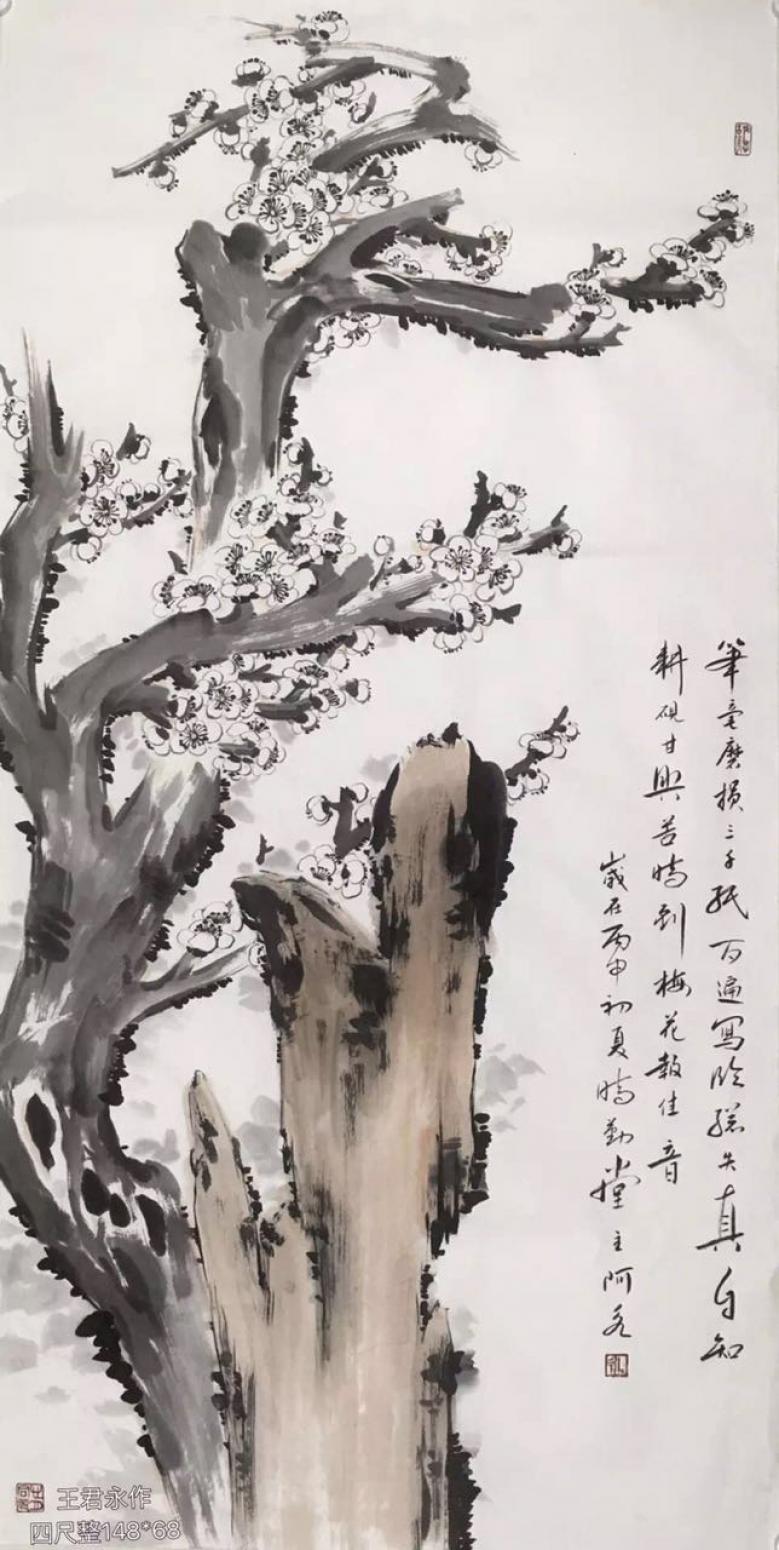 筆毫磨損三千紙百遍寫臨總失真自知
耕硯甘與苦時到梅花報佳音
歲在丙申初夏時勤堂主阿永
王君永作
四尺整148*68